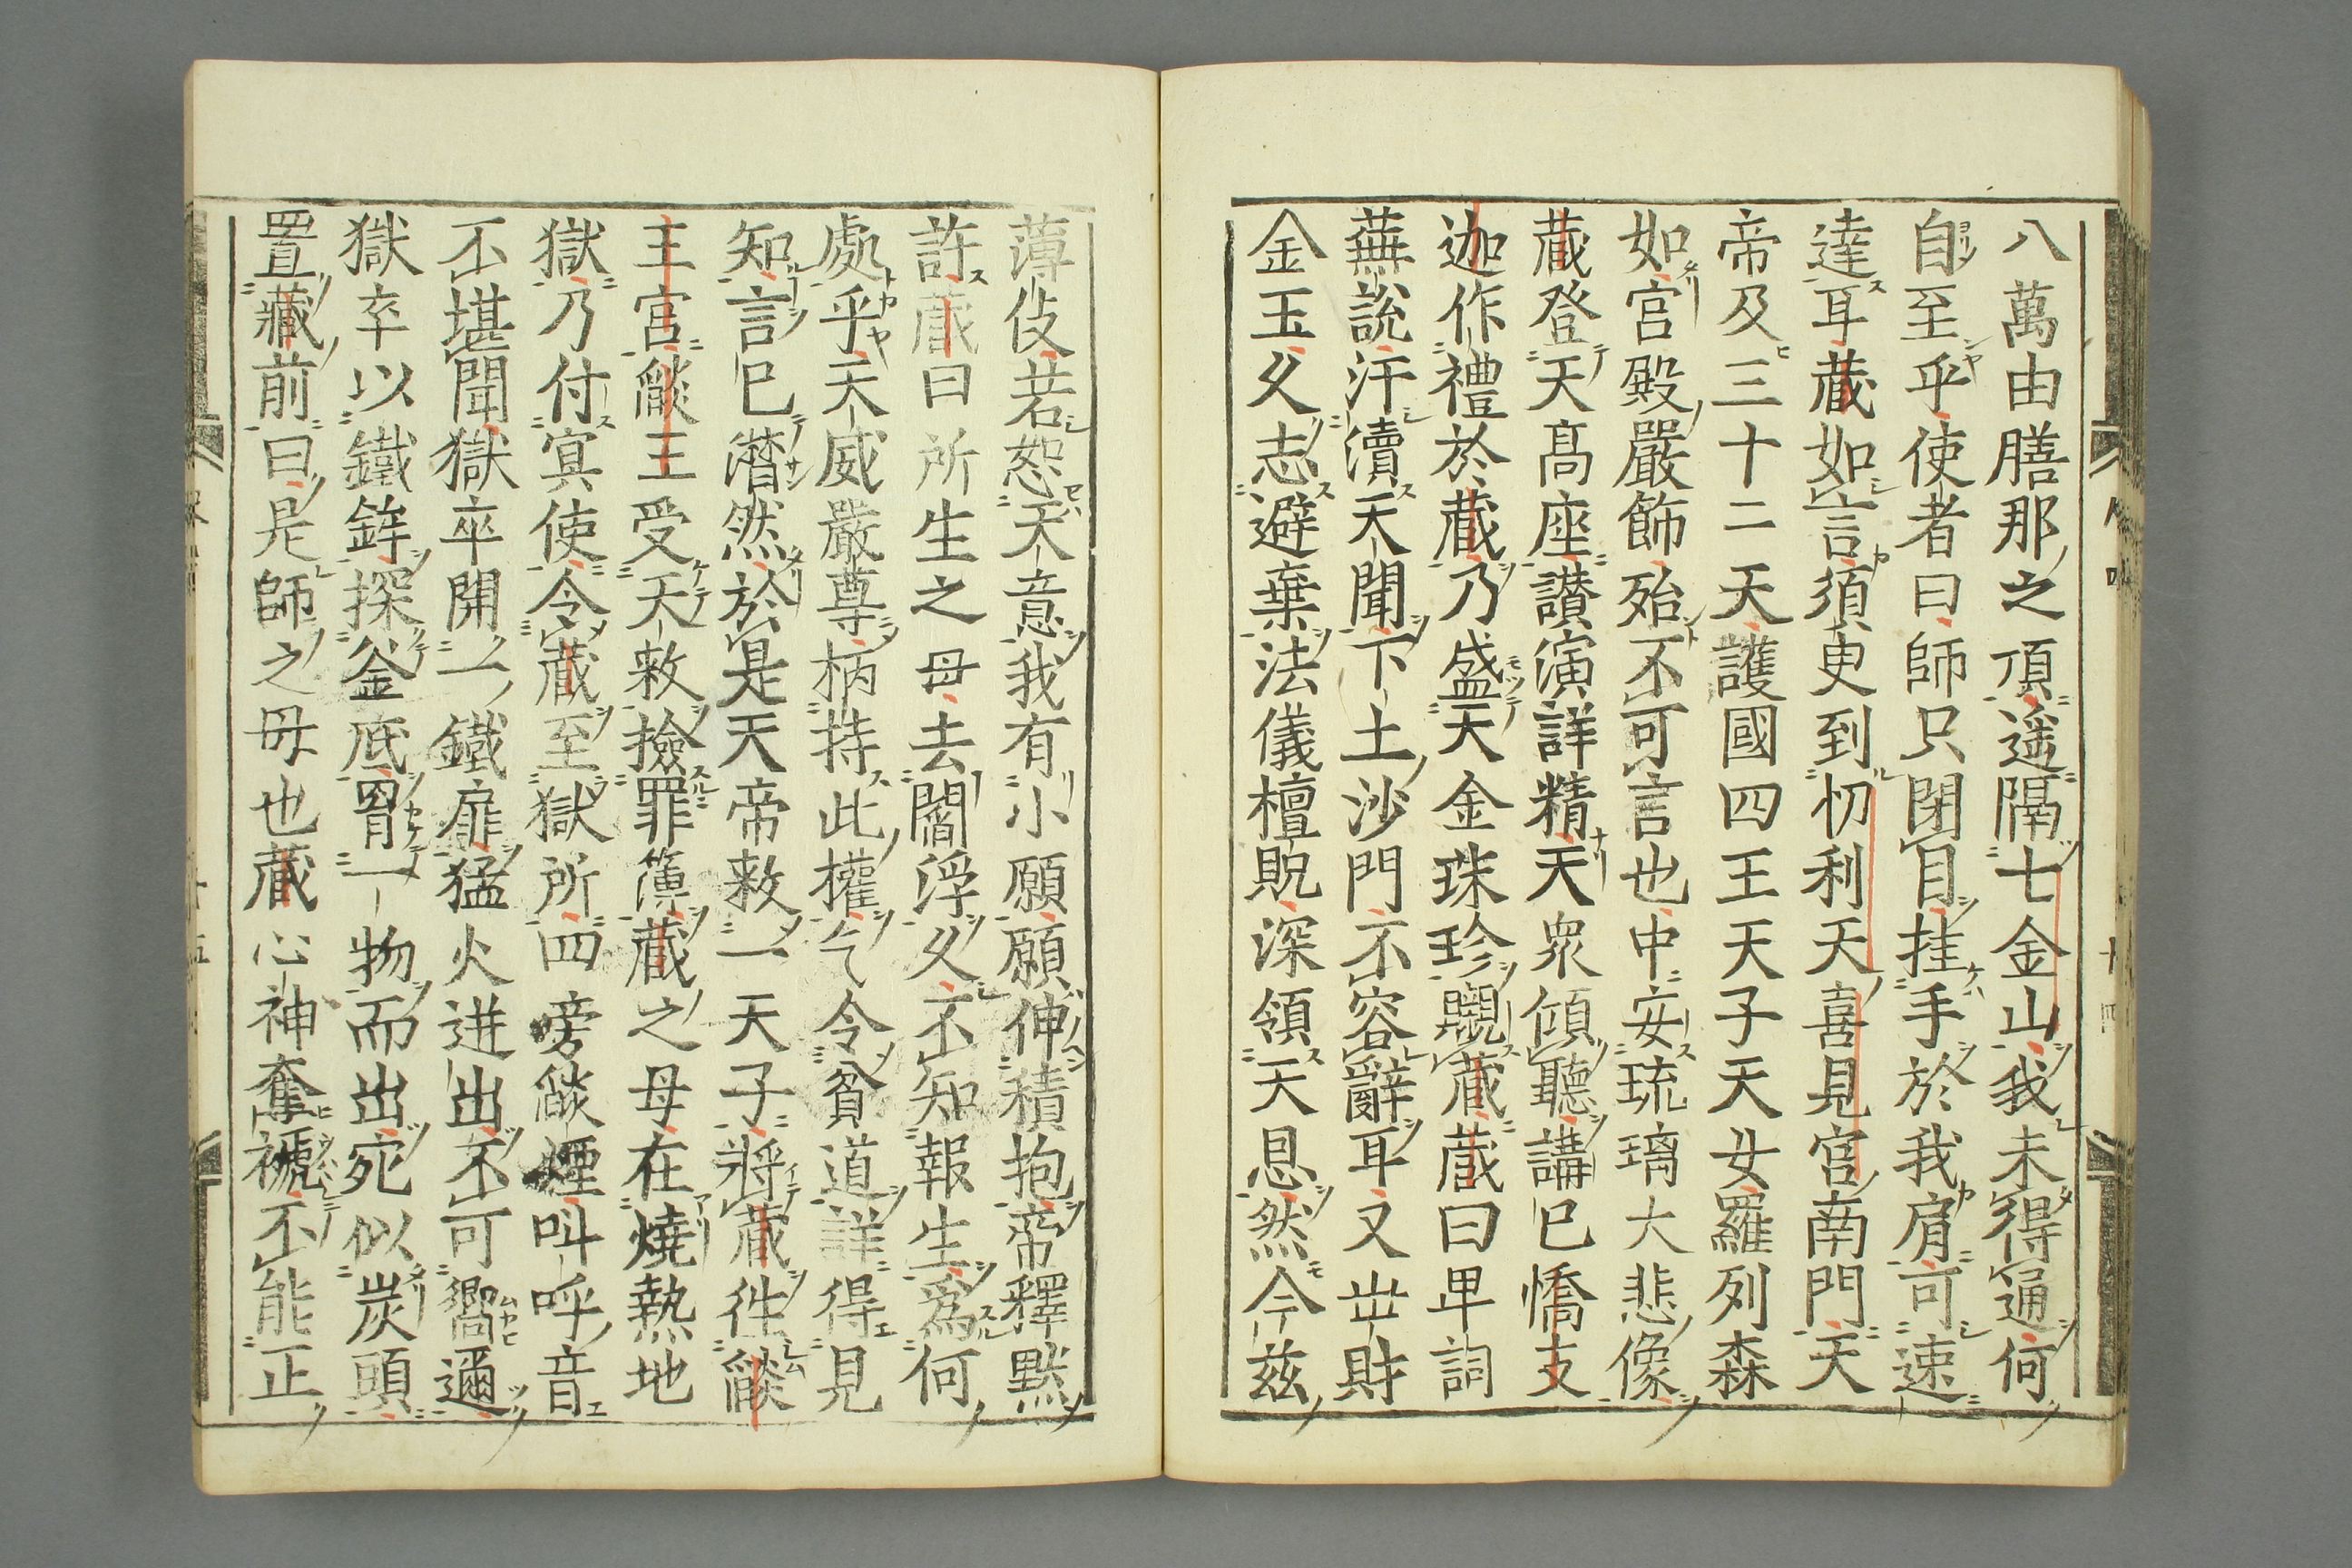 八萬由膳那之頂遥隔七金山我未得通何
自至乎使者曰師只閉目挂手於我肩可速
達耳蔵如言須臾到忉利天喜見宮南門天
帝及三十二天護國四王天子天女羅列森
如宮殿嚴飾殆不可言也中安琉璃大悲像
蔵登天髙座讃演詳精天衆傾聽講已憍支
迦作禮於蔵乃盛天金珠珍嚫蔵蔵曰卑詞
蕪説汗瀆天聞下土沙門不容辭耳又丗財
金玉久志避棄法儀檀貺深領天恩然今茲
薄伎若恕天意我有小願願伸積抱帝釋黙
許蔵曰所生之母去閻浮久不知報生爲何
處乎天威嚴尊柄持此權乞令貧道詳得見
知言已潸然於是天帝敕一天子將蔵徃燄
王宮燄王受天敕撿罪簿蔵之母在燒熱地
獄乃付冥使令蔵至獄所四旁燄煙呌呼音
不堪聞獄卒開一鐵扉猛火迸出不可嚮邇
獄卒以鐵鉾探釜底罥一物而出宛似炭頭
置藏前曰是師之母也蔵心神奪褫不能正